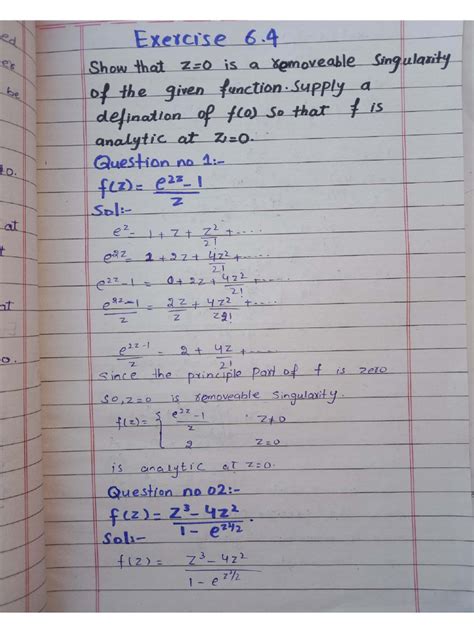 Exercise 6.4
ed
er
be
Show that z=0 is a removeable singularity
of the given function. Supply a
defination of f(0) so that f is
analytic at z=0.
Question no 1:-
0.
f(z) = e^2z - 1 / z
Sol:-
e^z = 1 + z + z^2/2! + ....
at
e^2z = 1 + 2z + 4z^2/2! + ....
e^2z - 1 = 0 + 2z + 4z^2/2! + ....
e^2z - 1 / z = 2z/z + 4z^2/z2! + ....
at
e^2z - 1 / z = 2 + 4z/2! + ....
o.
Since the principle part of f is zero
so, z=0 is removeable singularity.
f(z) = { e^2z - 1 / z , z≠0
2 z=0
is analytic at z=0.
Question no 02:-
f(z) = z^3 - 4z^2 / 1 - e^z^2/2 .
Sol:-
f(z) = z^3 - 4z^2 / 1 - e^z^2/2